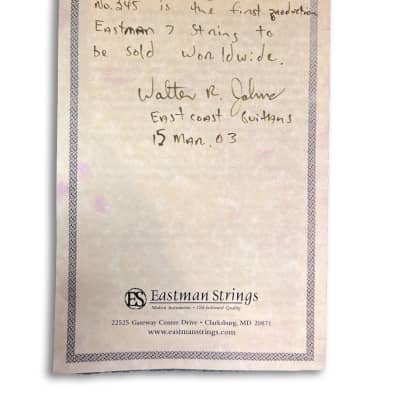 No. 345 is the first production
Eastman 7 String to
be sold worldwide.
Walter R. Johns
East Coast Guitars
15 Mar. 03
ES Eastman Strings
Modern Instruments • Old-fashioned Quality
22525 Gateway Center Drive • Clarksburg, MD 20871
www.eastmanstrings.com